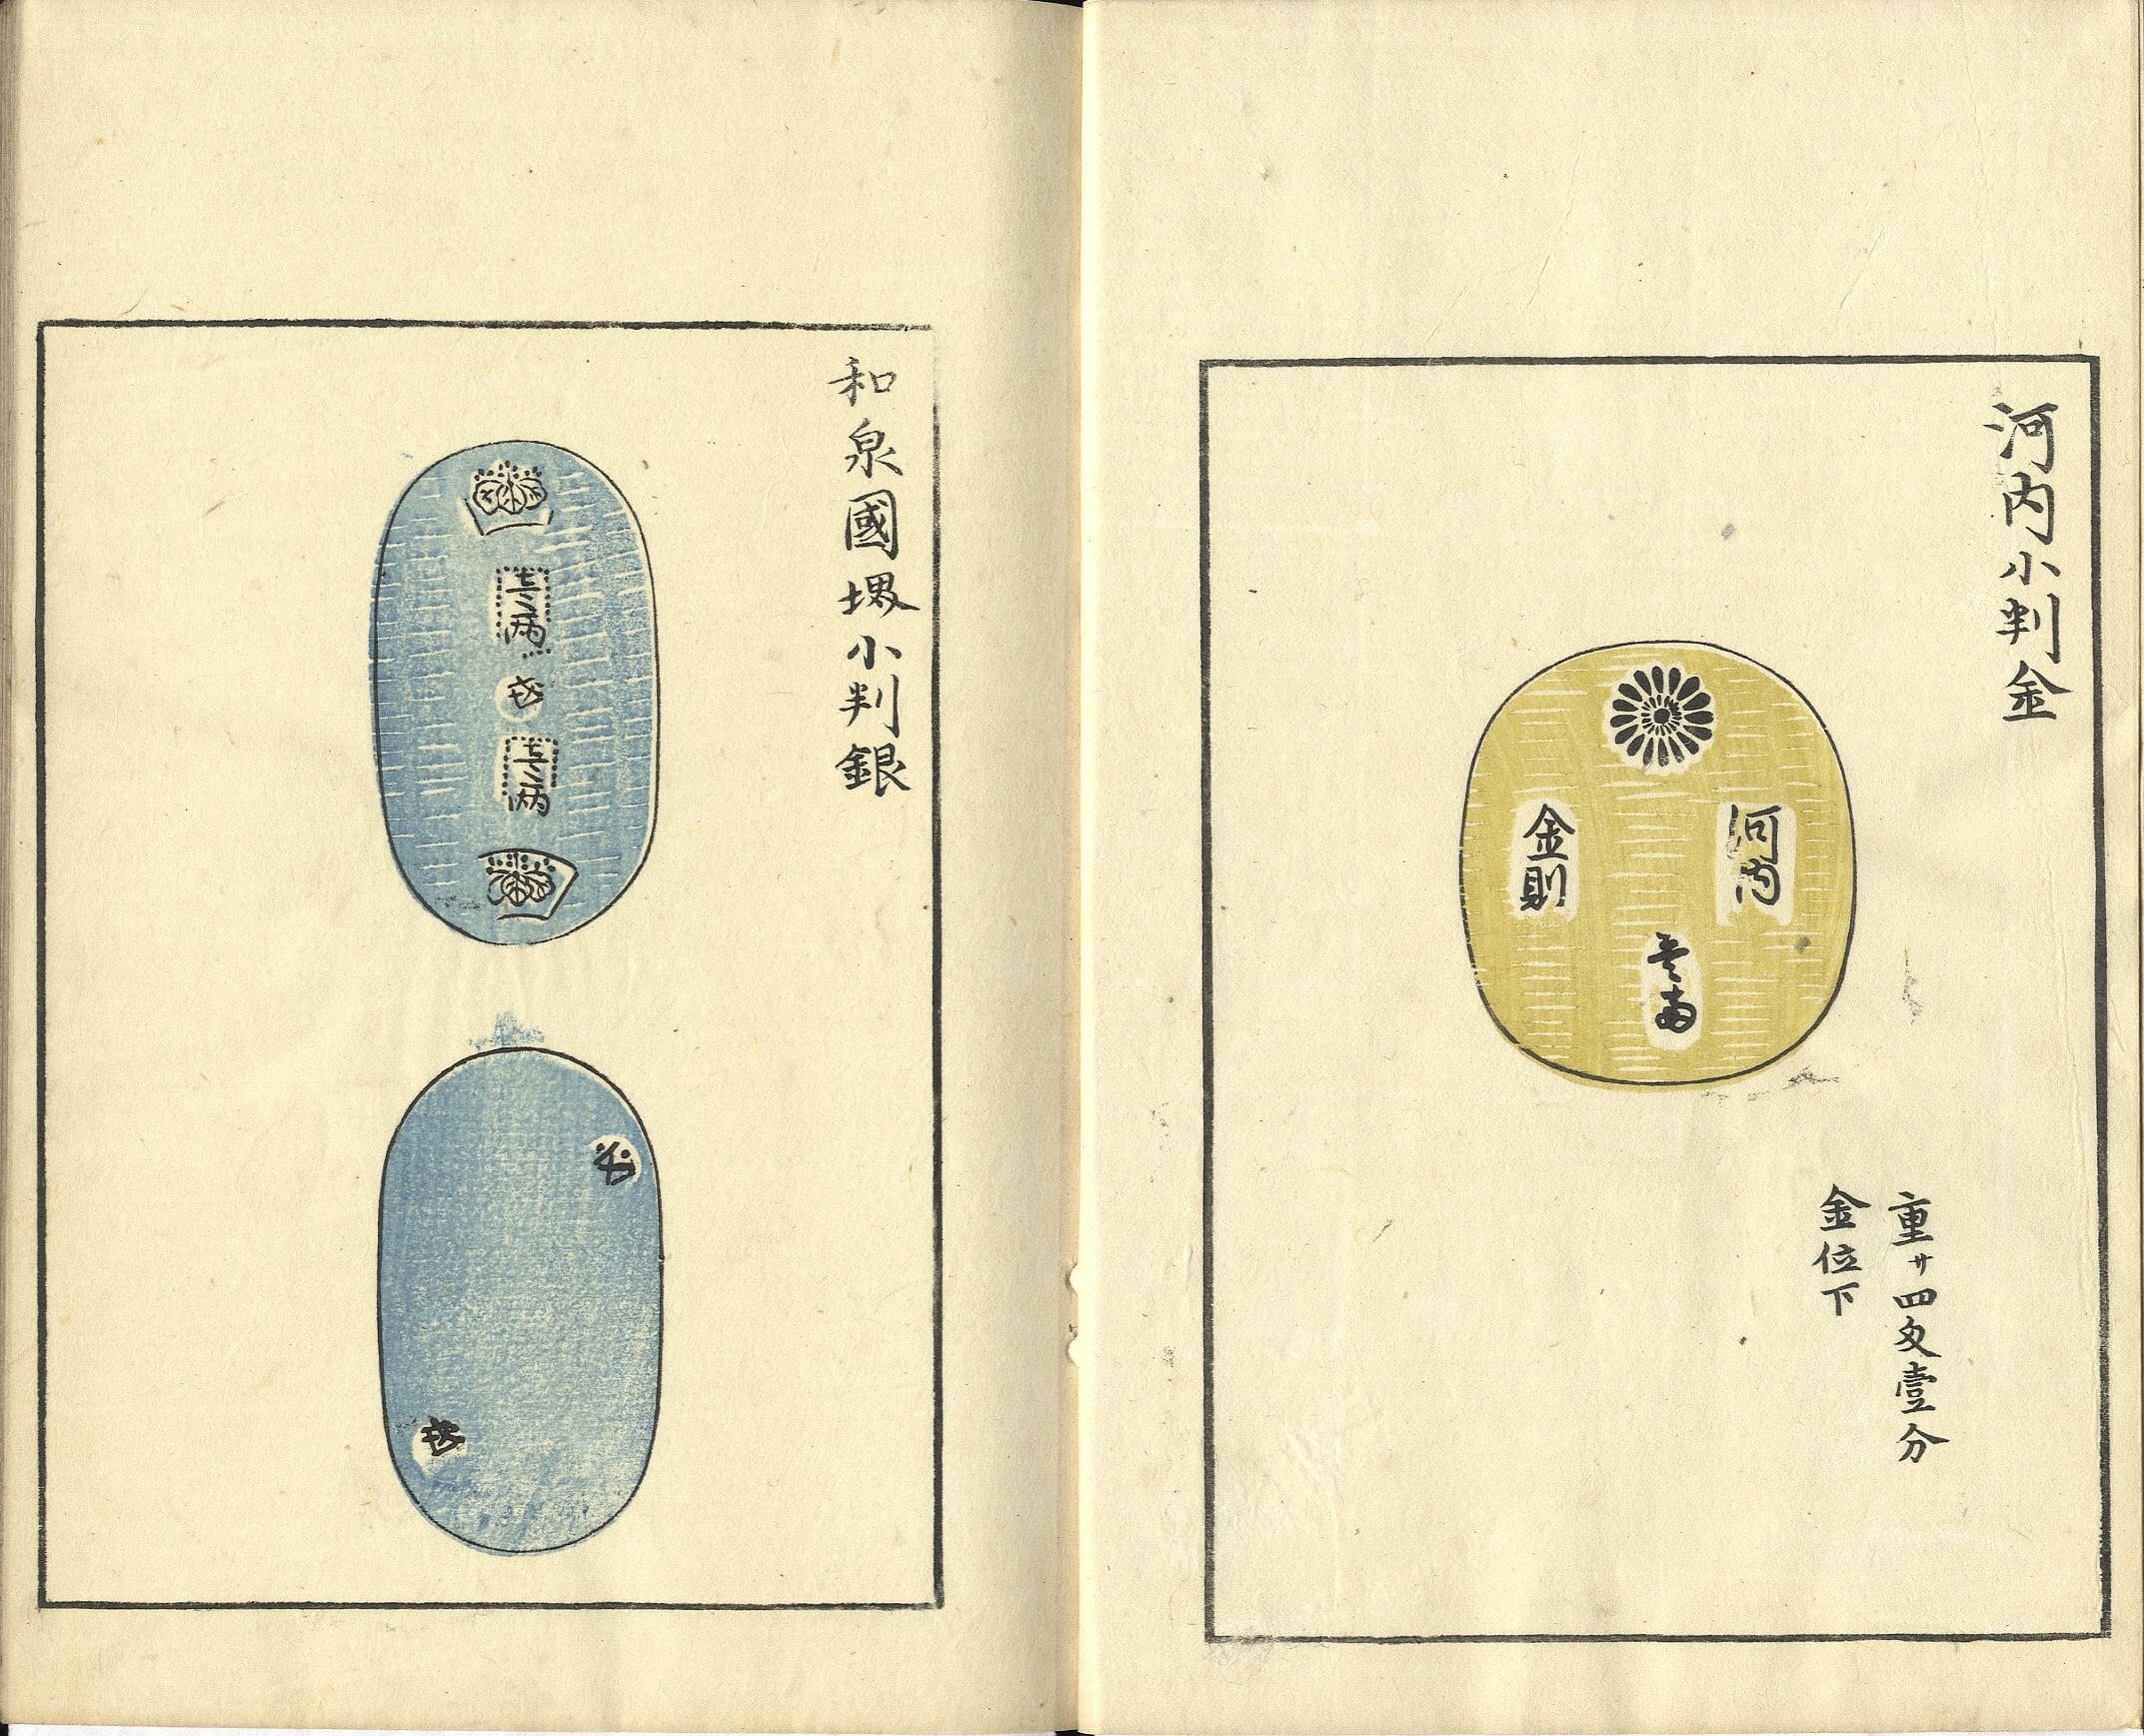 河内小判金
河内
金則
壹両
重廿四匁壹分
金位下
和泉國堺小判銀
壹両
壹両